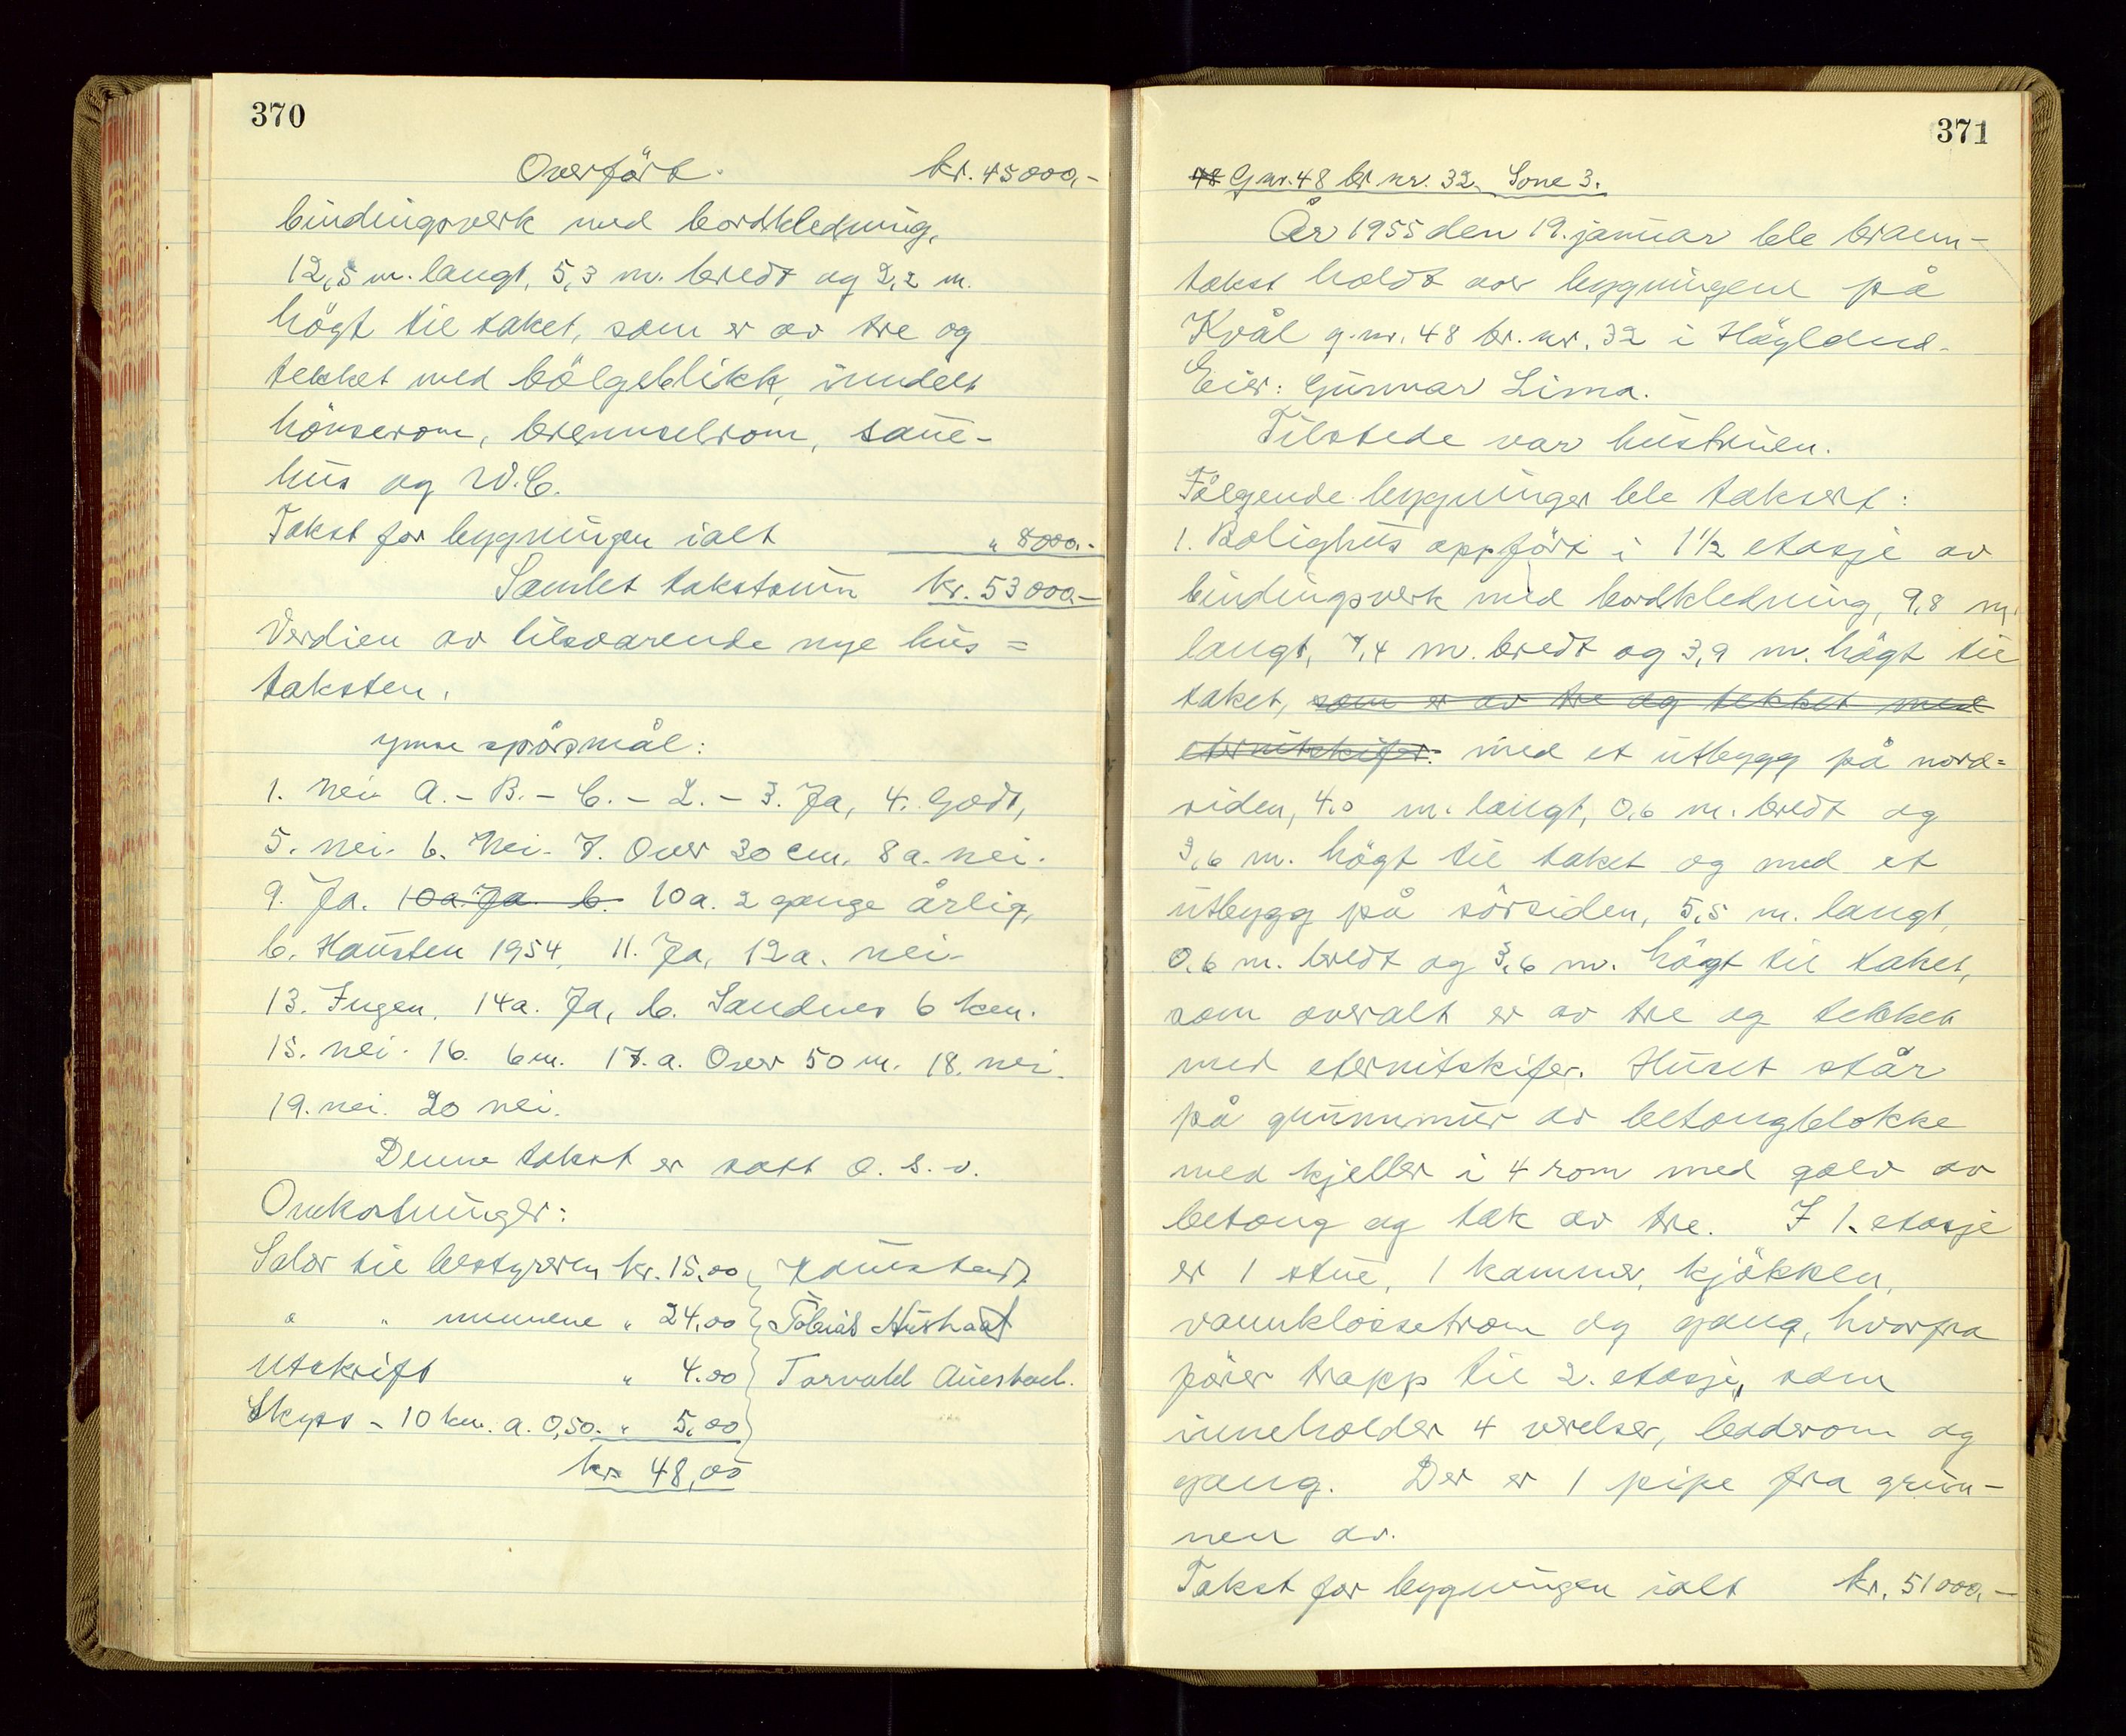 370
Overført. kr. 45000,-
bindingsverk med bordkledning,
12,5 m. langt, 5,3 m. bredt og 2,2 m.
högt til taket, som er av tre og
tekket med bölgeblikk, inndelt
hönserom, brennselrom, saue-
hus og W.C.
Takst for bygningen ialt " 8000.-
Samlet takstsum kr. 53000.-
Verdien av tilsvarende nye hus =
taksten.
Ymse spörsmål:
1. Nei A. - B. - C. - 2. - 3. Ja, 4. Godt,
5. nei. 6. Nei. 7. Over 30 cm. 8a. nei.
9. Ja. 10a. Ja b. 10a. 2 gange årlig,
b. Hausten 1954, 11. Ja, 12a. nei-
13. Ingen. 14a. Ja, b. Sandnes 6 km.
15. nei. 16. 6m. 17.a. Over 50 m. 18. nei.
19. nei. 20 nei.
Denne takst er satt o. s. v.
Omkostninger:
Salær til bestyreren kr. 15,00
" " mennene " 24,00 Tobias
Utskrift " 4.00 Torvald Auestad.
Skyss - 10 km. a. 0,50. " 5,00
kr. 48,00
371
48 G.nr. 48 br. nr. 32. Sone 3.
År 1955 den 19. januar ble brann-
takst holdt over bygningene på
Kvål g.nr. 48 br. nr. 32 i Höyland.
Eier: Gunnar Lima.
Tilstede var hustruen.
Fölgende bygninger ble taksert:
1. Bolighus oppfört i 1 1/2 etasje av
bindingsverk med bordkledning, 9,8 m.
langt, 7,4 m. bredt og 3,9 m. högt til
taket, som er av tre og tekket med
eternitskifer. med et utbygg på nord=
siden, 4,0 m. langt, 0,6 m. bredt og
3,6 m. högt til taket og med et
utbygg på sörsiden, 5,5 m. langt,
0,6 m. bredt og 3,6 m. högt til taket,
som overalt er av tre og tekket
med eternitskifer. Huset står
på grunnmur av betongblokke
med kjeller i 4 rom med golv av
betong og tak av tre. I 1. etasje
er 1 stue, 1 kammer, kjökken,
vannklossetrom og gang, hvorfra
förer trapp til 2. etasje, som
inneholder 4 værelser, baderom og
gang. Der er 1 pipe fra grun-
nen av.
Takst for bygningen ialt kr. 51000,-